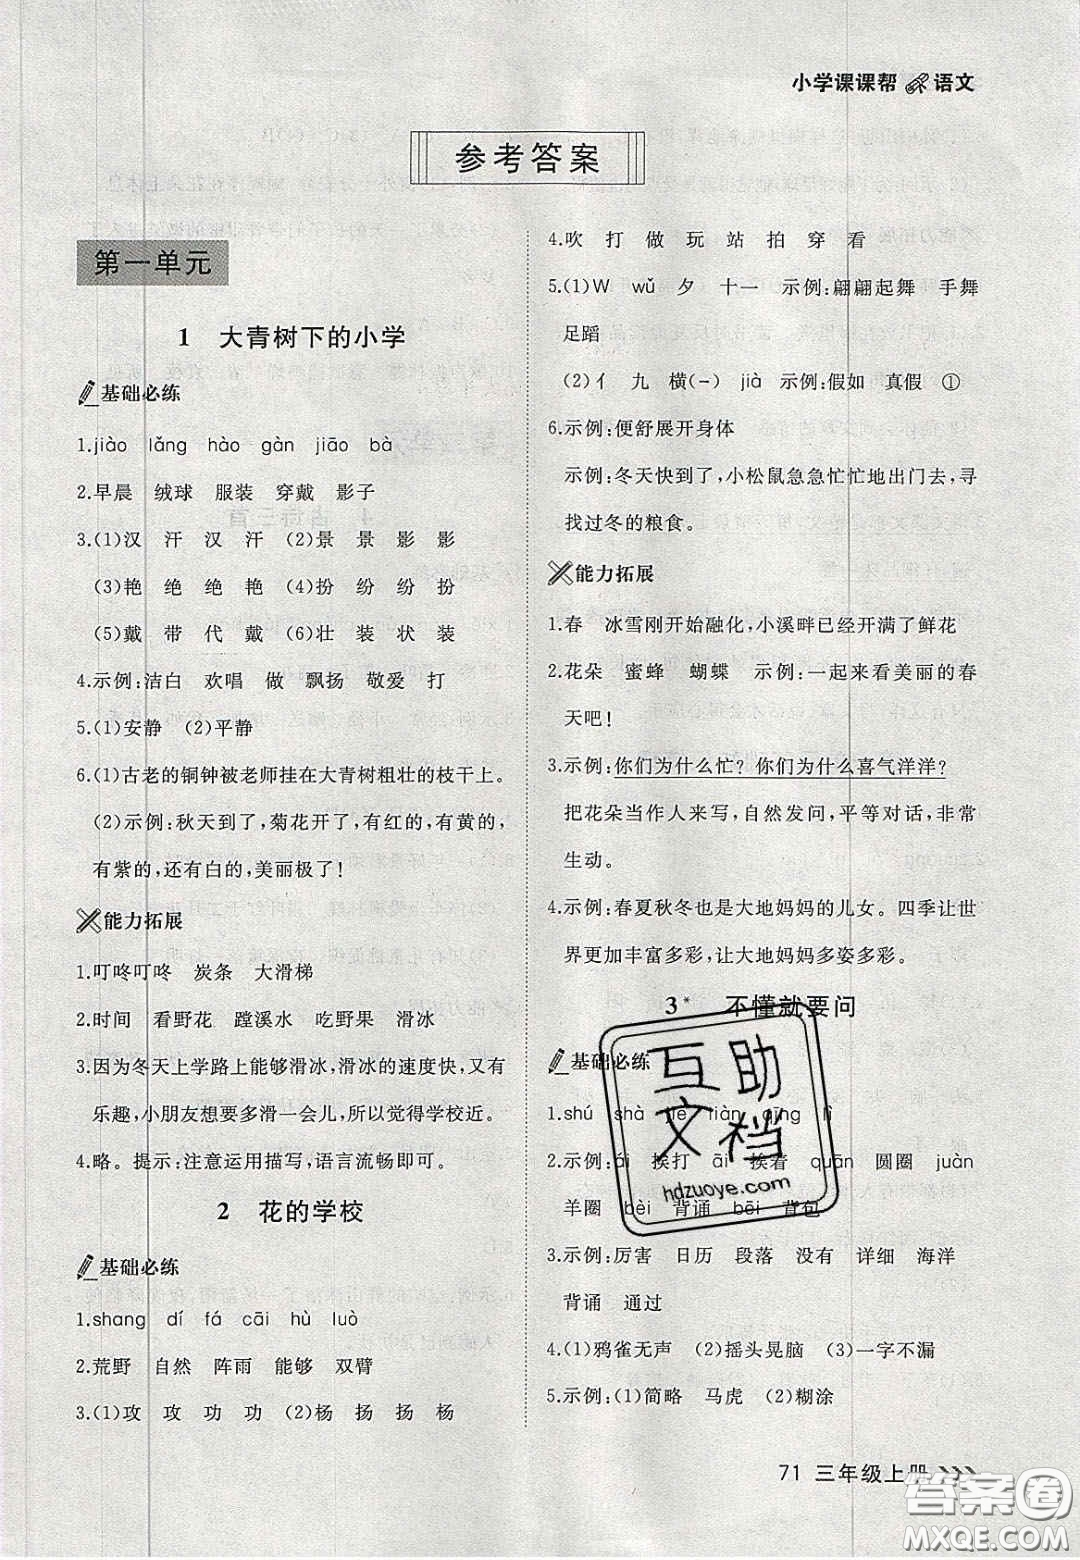 小学课课帮 语文
参考答案
第一单元
1 大青树下的小学
基础必练
1.jiào lǎng hào gàn jiāo bà
2.早晨 绒球 服装 穿戴 影子
3.(1)汉 汗 汉 汗 (2)景 景 影 影
(3)艳 绝 绝 艳 (4)扮 纷 纷 扮
(5)戴 带 代 戴 (6)壮 装 状 装
4.示例:洁白 欢唱 做 飘扬 敬爱 打
5.(1)安静 (2)平静
6.(1)古老的铜钟被老师挂在大青树粗壮的枝干上。
(2)示例:秋天到了,菊花开了,有红的,有黄的,
有紫的,还有白的,美丽极了!
能力拓展
1.叮咚叮咚 炭条 大滑梯
2.时间 看野花 蹚溪水 吃野果 滑冰
3.因为冬天上学路上能够滑冰,滑冰的速度快,又有
乐趣,小朋友想要多滑一会儿,所以觉得学校近。
4.略。提示:注意运用描写,语言流畅即可。
2 花的学校
基础必练
1.shang dí fá cāi hù luò
2.荒野 自然 阵雨 能够 双臂
3.(1)攻 攻 功 功 (2)杨 扬 扬 杨
4.吹 打 做 玩 站 拍 穿 看
5.(1)W wǔ 夕 十一 示例:翩翩起舞 手舞
足蹈
(2)亻 九 横(一) jià 示例:假如 真假 ①
6.示例:便舒展开身体
示例:冬天快到了,小松鼠急急忙忙地出门去,寻
找过冬的粮食。
能力拓展
1.春 冰雪刚开始融化,小溪畔已经开满了鲜花
2.花朵 蜜蜂 蝴蝶 示例:一起来看美丽的春
天吧!
3.示例:你们为什么忙?你们为什么喜气洋洋?
把花朵当作人来写,自然发问,平等对话,非常
生动。
4.示例:春夏秋冬也是大地妈妈的儿女。四季让世
界更加丰富多彩,让大地妈妈多姿多彩。
3* 不懂就要问
基础必练
1.shú shà lè tiàn qīng lì
2.示例:ái 挨打 āi 挨着 quān 圆圈 juàn
羊圈 bèi 背诵 bēi 背包
3.示例:厉害 日历 段落 没有 详细 海洋
背诵 通过
4.(1)鸦雀无声 (2)摇头晃脑 (3)一字不漏
5.示例:(1)简略 马虎 (2)糊涂
互助
文档
hdzuoye.com
71 三年级上册
答案圈
MXQE.COM